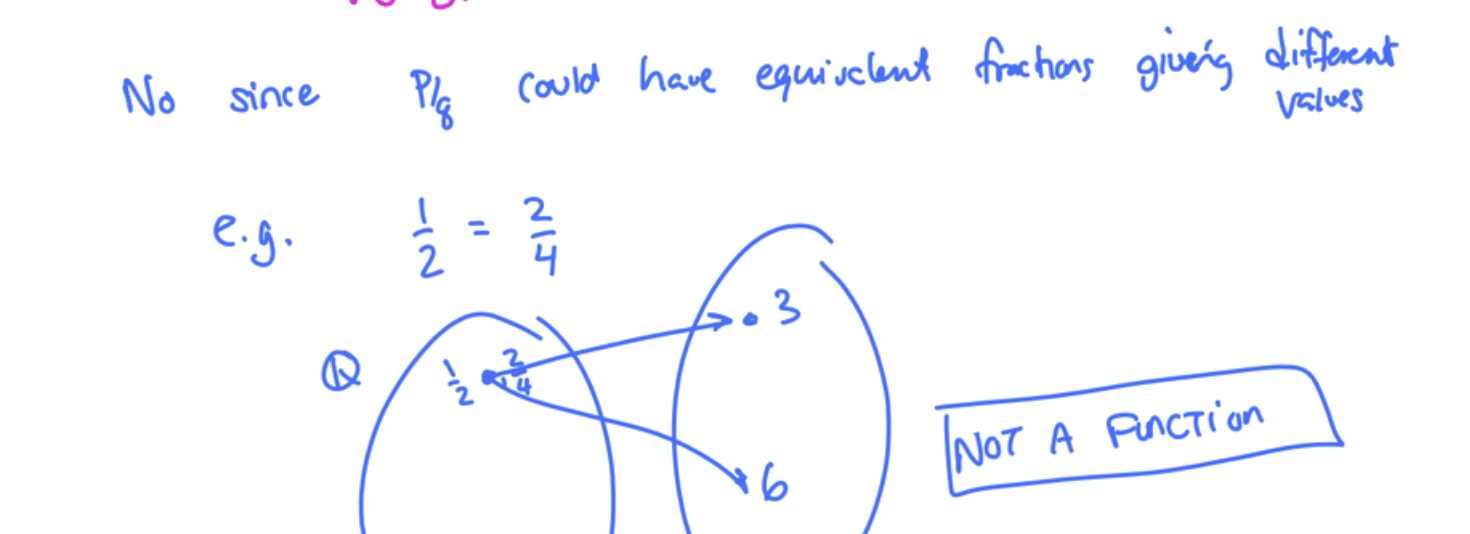 No since P/q could have equivalent fractions giving different
values
e.g. 1/2 = 2/4
3
Q 1/2 2/4
NOT A FUNCTION
6